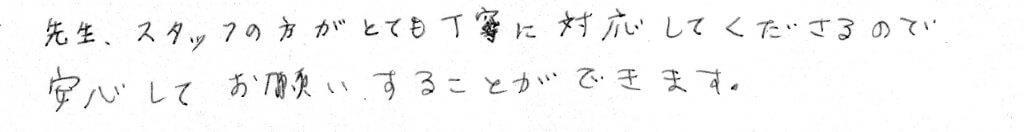 先生、スタッフの方がとても丁寧に対応してくださるので
安心してお願いすることができます。